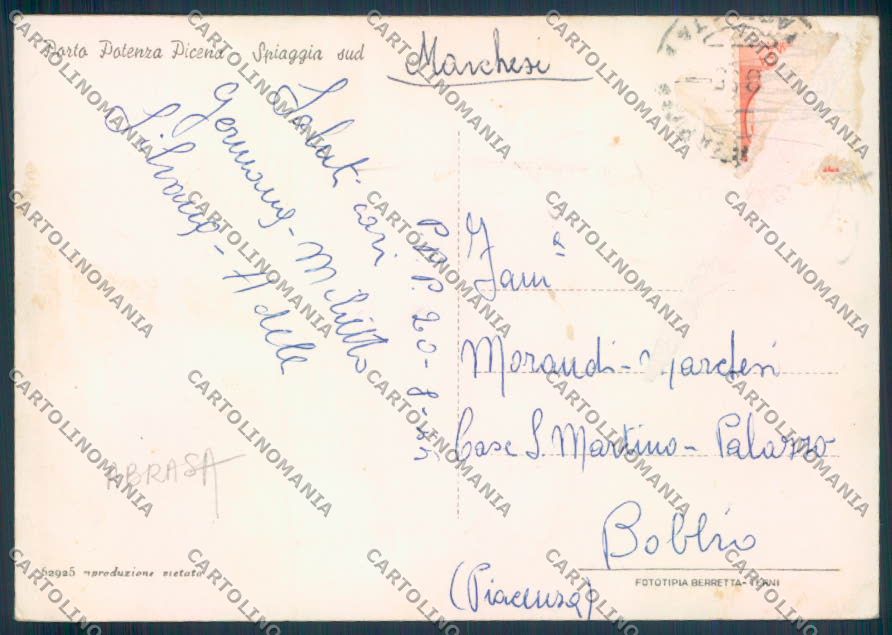 Porto Potenza Picena - Spiaggia sud
Marchesi
Saluti cari
Germana - Miletto
Silvana - Adele
P.P.P. 20-8-
Fam.
Morandi - Marchesi
Case S. Martino - Palazzo
Bobbio
(Piacenza)
ABRASA
52925 riproduzione vietata
FOTOTIPIA BERRETTA - TERNI
CARTOLINOMANIA